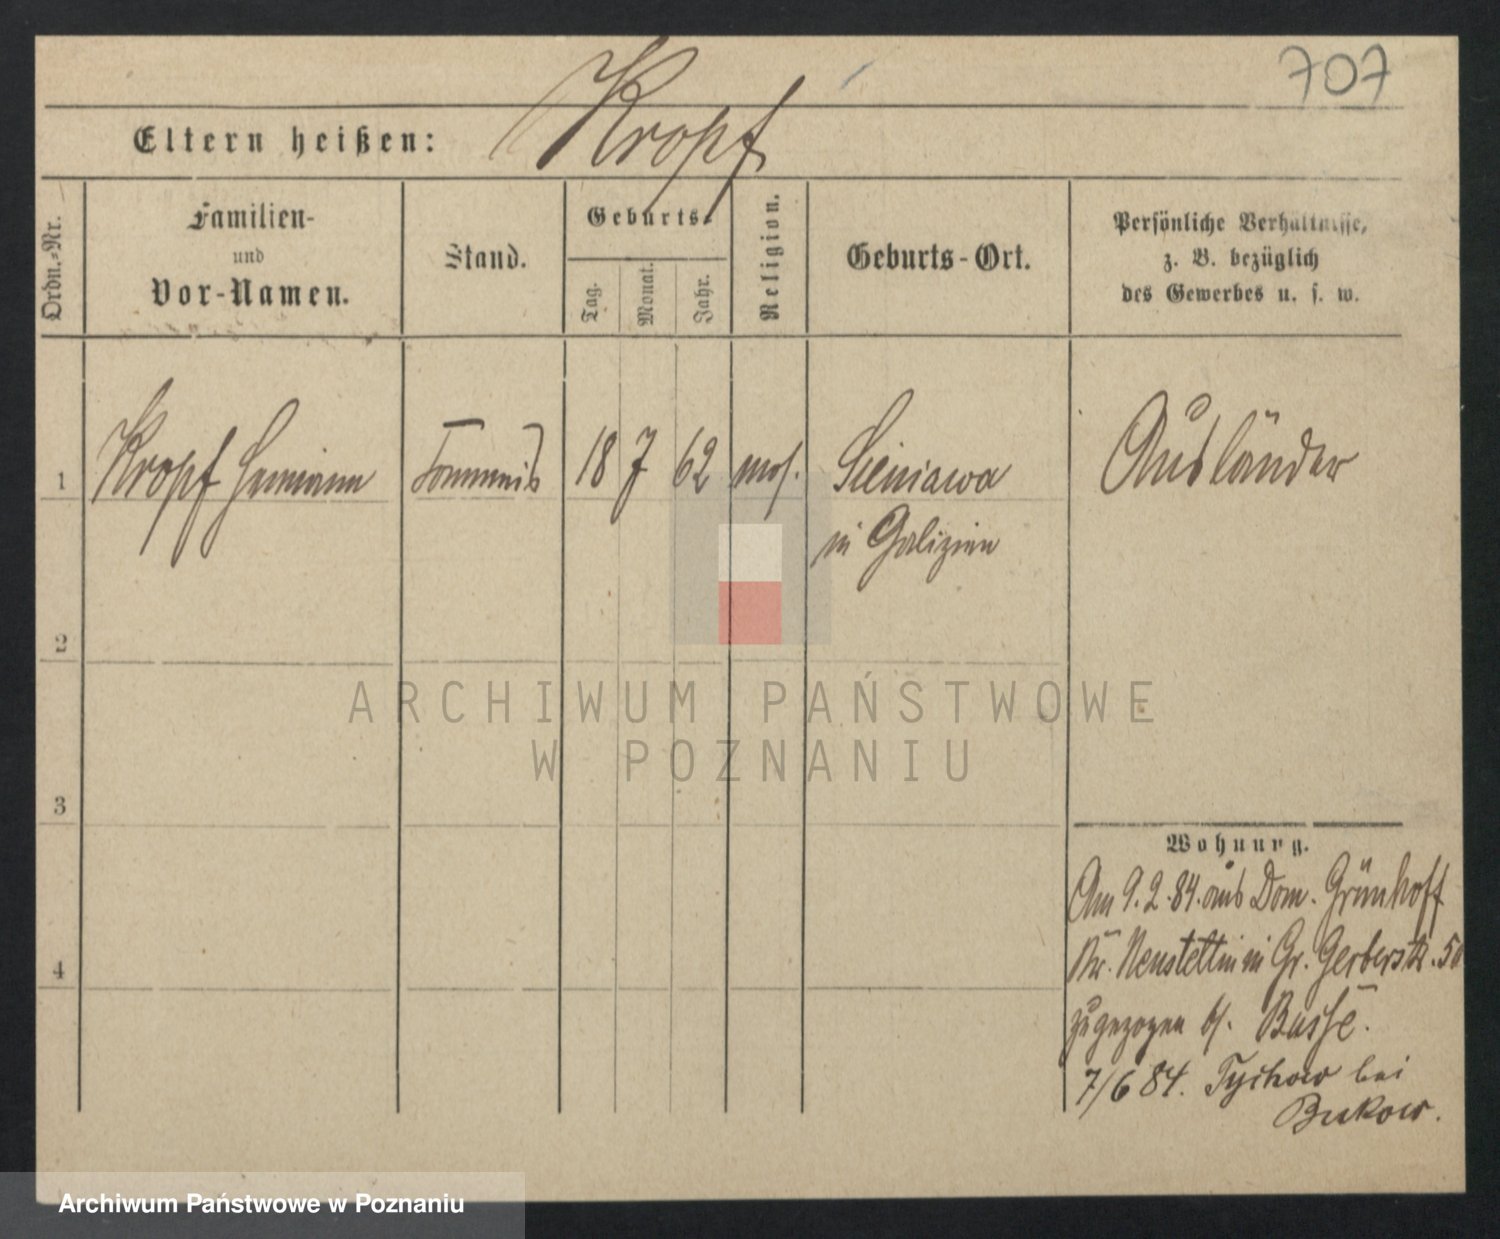 707
Kropf
Eltern heißen:
Ordn.-Nr.
Familien-
und
Vor-Namen.
Stand.
Geburts-
Tag.
Monat.
Jahr.
Religion.
Geburts-Ort.
Persönliche Verhältnisse,
z. B. bezüglich
des Gewerbes u. s. w.
1 Kropf Hermann Commis 18 7 62 mos. Sieniawa Ausländer
in Galizien
2
3
4
Wohnung.
Am 9.2.84. aus Dom. Grünhoff
Kr. Neustettin in Gr. Gerberstr. 50
zugezogen b/. Busse.
7/6 84. Tychow bei
Bukow.
ARCHIWUM PAŃSTWOWE
W POZNANIU
Archiwum Państwowe w Poznaniu